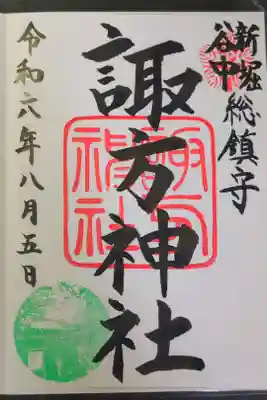 新堀
谷中
総鎮守
諏方神社
令和六年八月五日
諏方神社